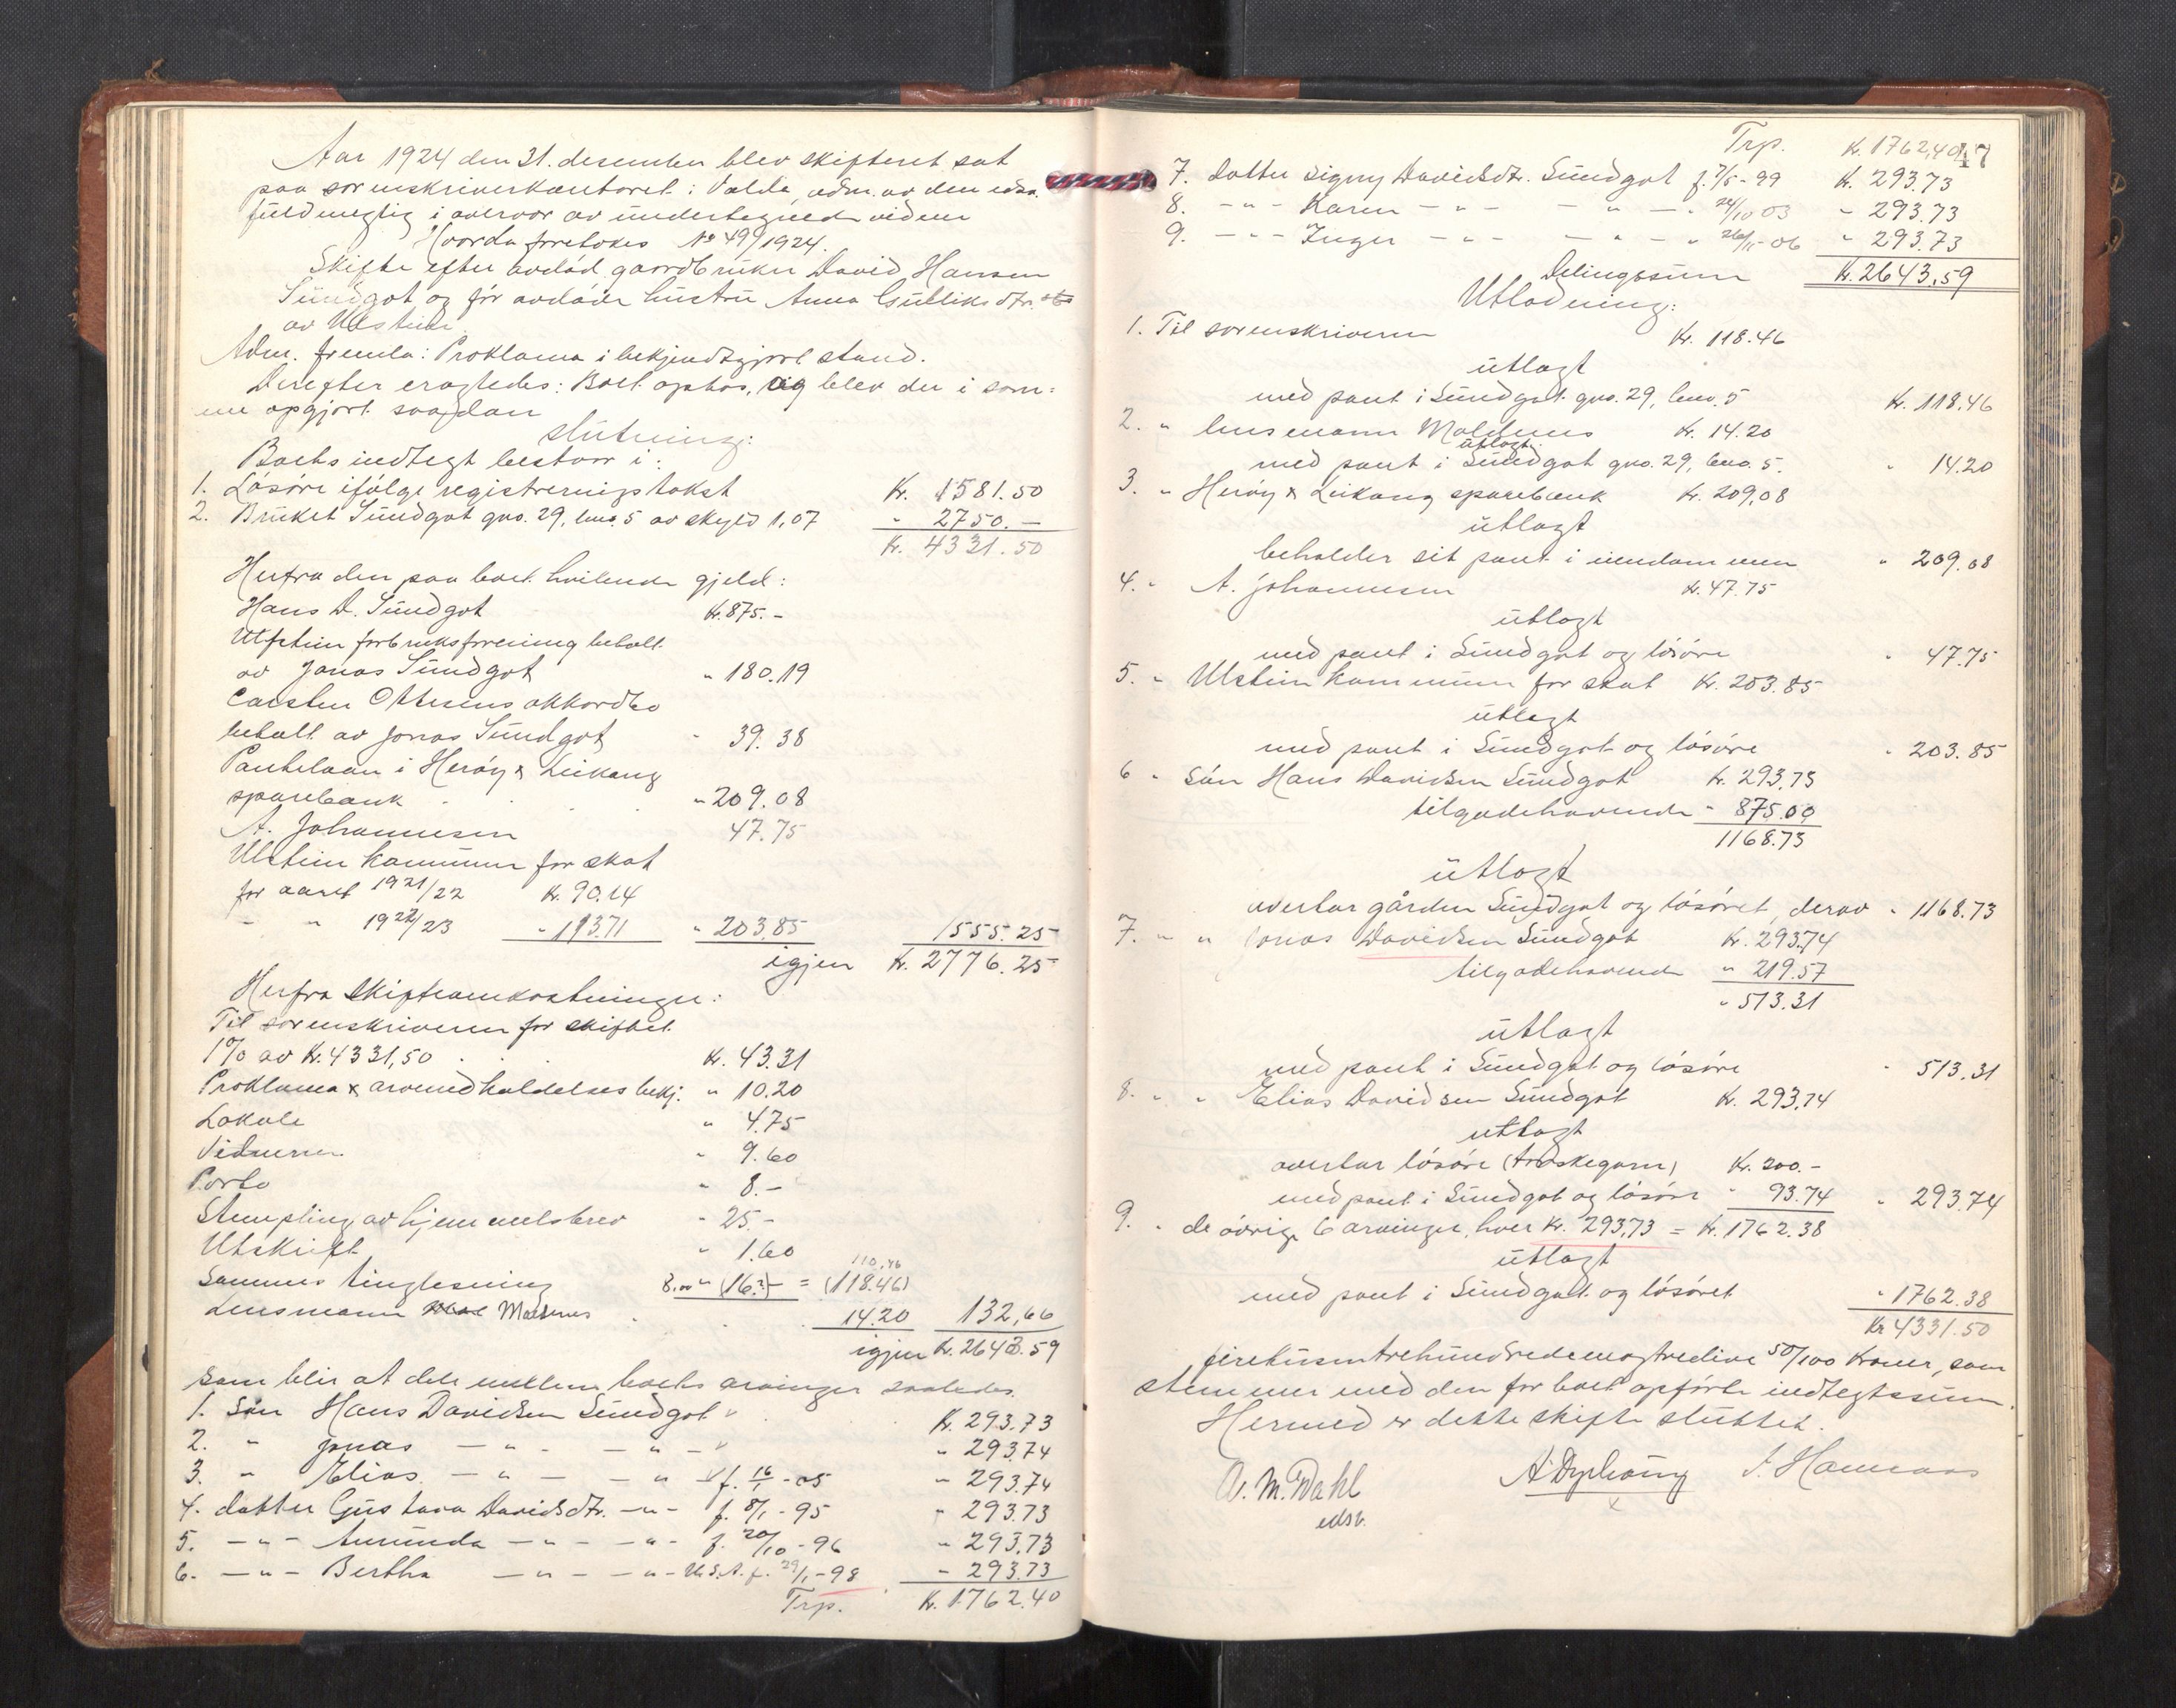 Aar 1924 den 31. desember blev skifteret sat
paa sorenskriverkontoret i Volda, adm. av den edsv.
fuldmegtig i overvær av undertegnede vidner
Hvorda foretokes No 49/1924.
Skifte efter avdød gaardbruker David Hansen
Sundgot og før avdøde hustru Anna Gulliksdtr.
av Ulstein.
Adm. fremla: Proklama i bekjendtgjort stand.
Derefter eragtedes: Boet optas, og blev der i sam-
me opgjort saadan
slutning:
Boets indtegt bestaar i:
1. Løsøre ifølge registreringstakst Kr. 1581.50
2. Bruket Sundgot gno. 29, bno. 5 av skyld 1,07 " 2750.—
Kr. 4331.50
Herfra den paa boet hvilende gjeld:
Hans D. Sundgot Kr. 875.-
Ulstein forbruksforening betalt
av Jonas Sundgot " 180.19
Carsten Ottesens akkordbo
betalt av Jonas Sundgot " 39.38
Pantelaan i Herøy & Leikang
sparebank " 209.08
A. Johannesen 47.75
Ulstein kommune for skat
for aaret 1921/22 Kr. 90.14
" " 1922/23 " 113.71 " 203.85 1555.25
igjen Kr. 2776.25
Herfra skifteomkostninger:
Til sorenskriveren for skiftet
1% av Kr. 4331,50 Kr. 43.31
Proklama & arvemedholdelses bekj. " 10.20
Lokale " 4.75
Vidnerne " 9.60
Porto " 8.-
Stempling av hjemmelsbrev " 25.-
Utskrift " 1.60
110,46
Sammes tinglesning 8,00 " (16.-) = (118.46)
Lensmann Moldnes 14.20 132,66
igjen Kr. 2643.59
som blir at dele mellem boets arvinger saaledes.
1. Søn Hans Davidsen Sundgot v Kr. 293.73
2. " Jonas — " — — " — v " 293.74
3. " Elias — " — — " v f. 16/1 - 05 " 293.74
4. datter Gustava Davidsdtr. — " — f. 8/1 - 95 " 293.73
5. — " — Amunda — " — — " — f. 20/10 - 96 " 293.73
6. — " — Bertha — " — — " — U.S.A. f. 29/1 - 98 " 293.73
Trp. Kr. 1762.40
Trp. Kr. 1762,40
7. datter Signy Davidsdtr. Sundgot f. 7/5 - 99 Kr. 293.73
8. — " — Karen — " — — " — " 24/10 03 " 293.73
9. — " — Inger — " — — " — " 26/5 - 06 " 293.73
Delingssum Kr. 2643,59
Utlodning:
1. Til sorenskriveren Kr. 118.46
utlagt
med pant i Sundgot gno. 29, bno. 5 Kr. 118.46
2. " lensmann Moldnes Kr. 14.20
utlagt
med pant i Sundgot gno. 29, bno. 5. " 14.20
3. " Herøy & Leikang sparebank Kr. 209,08
utlagt
beholder sit pant i eiendommen " 209.08
4. " A. Johannesen Kr. 47.75
utlagt
med pant i Sundgot og løsøre " 47.75
5. " Ulstein kommune for skat Kr. 203.85
utlagt
med pant i Sundgot og løsøre " 203.85
6 " Søn Hans Davidsen Sundgot Kr. 293,73
tilgodehavende " 875.00
1168.73
utlagt
overtar gården Sundgot og løsøret, derav " 1168.73
7. " " Jonas Davidsen Sundgot Kr. 293.74
tilgodehavende " 219.57
" 513.31
utlagt
med pant i Sundgot og løsøre " 513.31
8. " " Elias Davidsen Sundgot Kr. 293,74
utlagt
overtar løsøre (torskegarn) Kr. 200.-
med pant i Sundgot og løsøre " 93.74 " 293.74
9. " de øvrige 6 arvinger, hver Kr. 293,73 = Kr. 1762.38
utlagt
med pant i Sundgot og løsøret " 1762.38
Kr 4331.50
firetusentrehundredeenogtredive 50/100 kroner, som
stemmer med den for boet opførte indtegtssum.
Hermed er dette skifte sluttet.
O. M. Dahl
edsv.